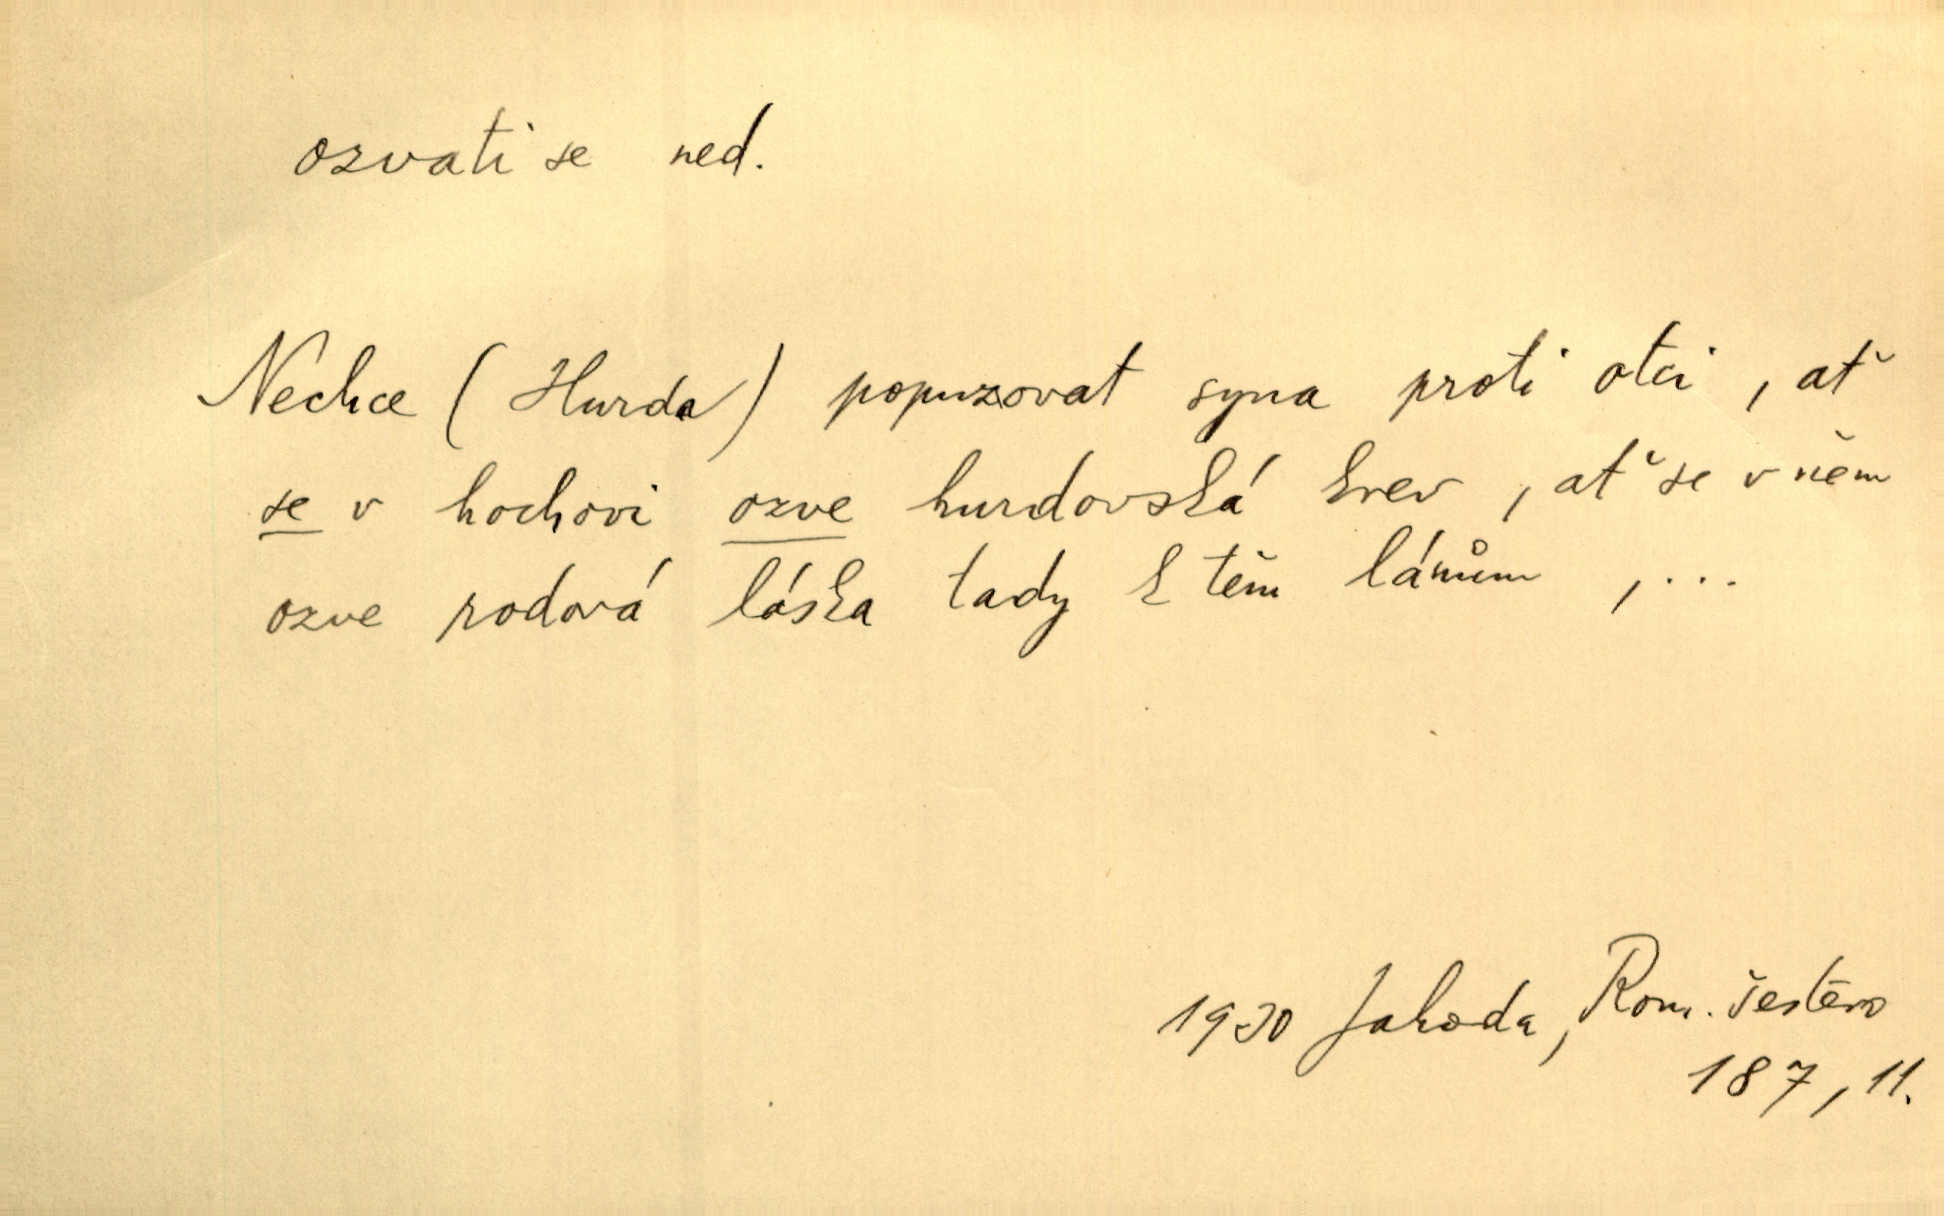 ozvati se ned.
Nechce (Hurda) popuzovat syna proti otci, ať
se v hochovi ozve hurdovská krev, ať se v něm
ozve rodová láska tady k těm lánům, ...
1930 Jahoda, Rom. šestero
187, 11.